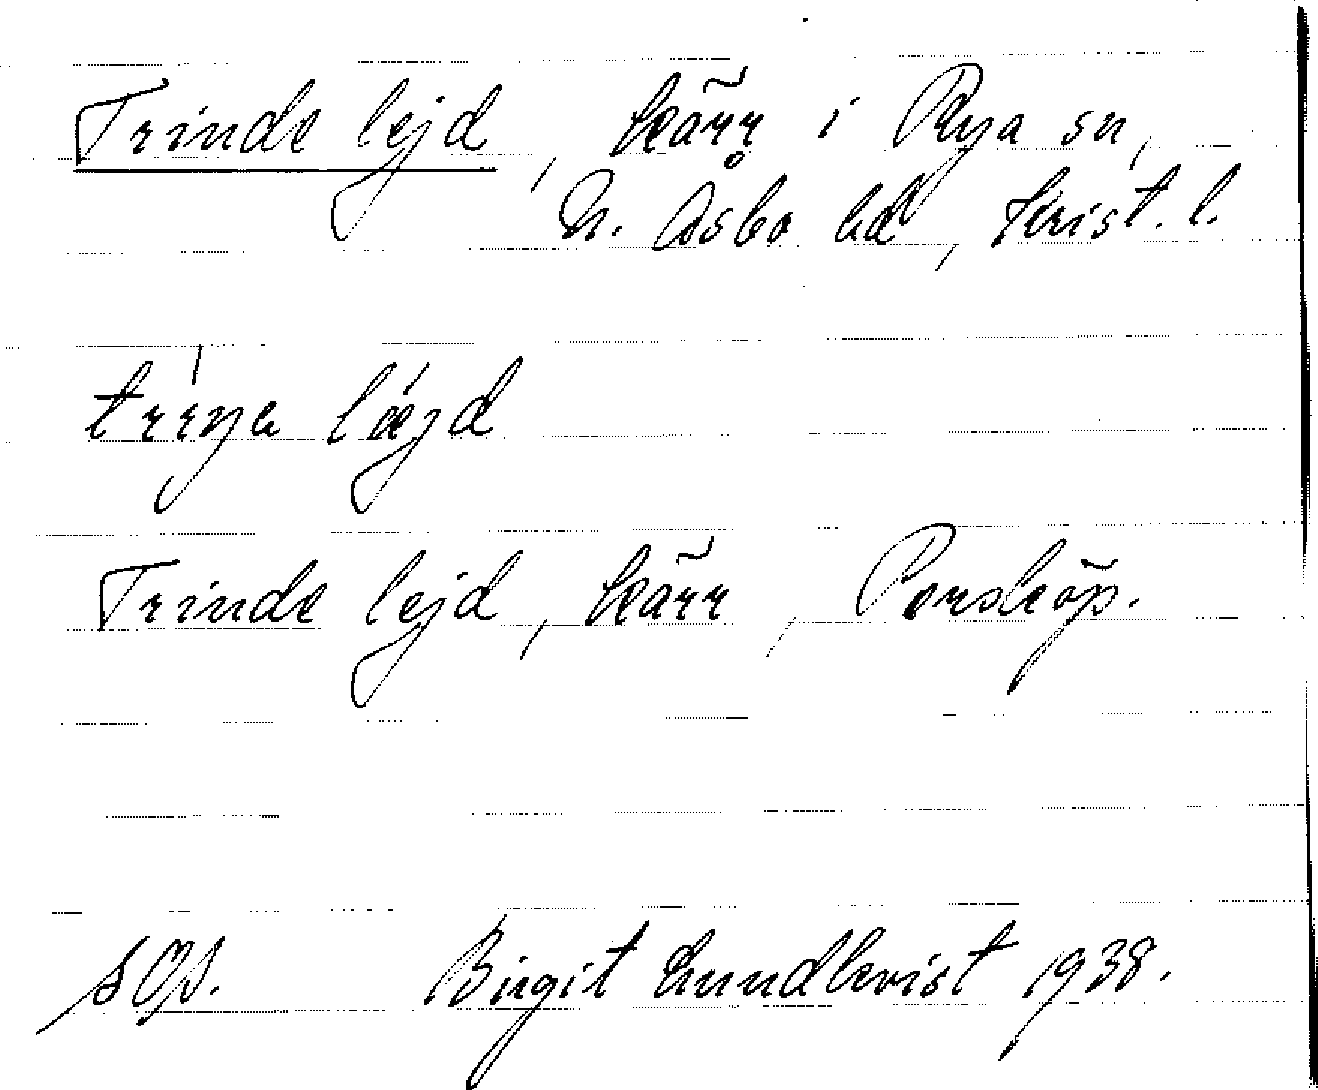 Trinde lejd, kärr i Rya sn,
N. Åsbo hd, Krist. l.
trıŋa lǽjd
Trinde lejd, kärr, Porsköp.
SOS. Birgit Lundkvist 1938.